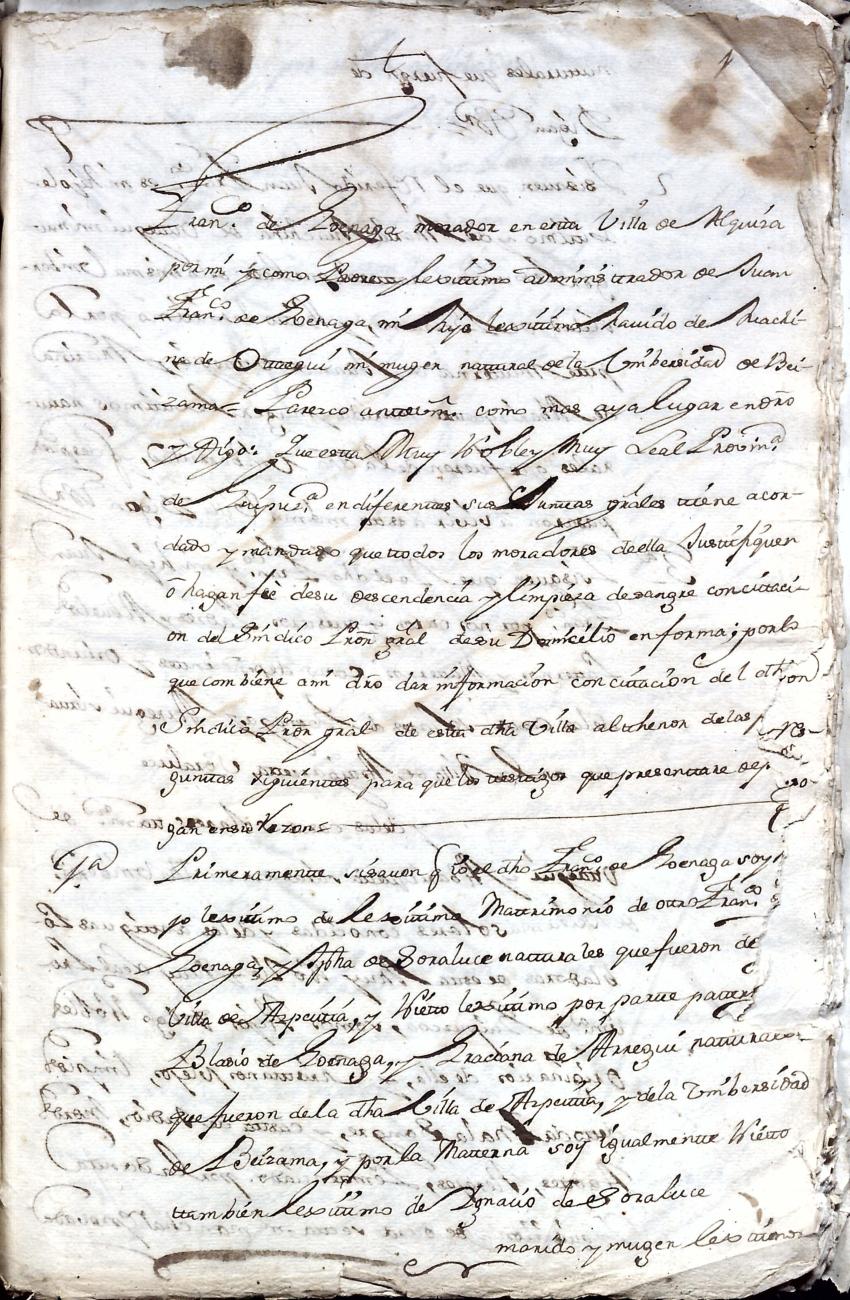 Fran.co de Goenaga morador en esta Villa de Alquiza
por mi y como Padre y lexitimo administrador de Juan
Fran.co de Goenaga mi hijo lexitimo havido de Machi-
na de Otegui mi muger natural de la Vmbersidad de Bei-
zama = Parezco ante vm. como mas aya lugar en dro
y digo: Que esta Muy Noble y Muy Leal Provin.a
de Guipuz.a en diferentes sus Juntas grâles tiene acor-
dado y mandado que todos los moradores de ella Justifiquen
ô hagan fee de su descendencia y limpieza de sangre con citaci-
on del Sindico Prôr grâl de su Domicilio en forma; por lo
que combiene a mi dro dar informacion con citacion del dho
Sindico Prôr grâl de esta dha Villa al thenor de las
guntas siguientes para que los testigos que presentare de
gan en su razon =
1.a Primeramente si saven q io el dho Fran.co de Goenaga soy
jo lexitimo de lexitimo Matrimonio de otro Fran.co
Goenaga y Jpha de Soraluce naturales que fueron de
Villa de Azpeitia, y Nieto lexitimo por parte patter
Blasio de Goenaga, y Graciana de Arregui naturales
que fueron de la dha Villa de Azpeitia, y de la Vmbersidad
de Beizama, y por la Matterna soy igualmente Nietto
tambien lexitimo de Ygnacio de Soraluce
marido y muger lexitimos